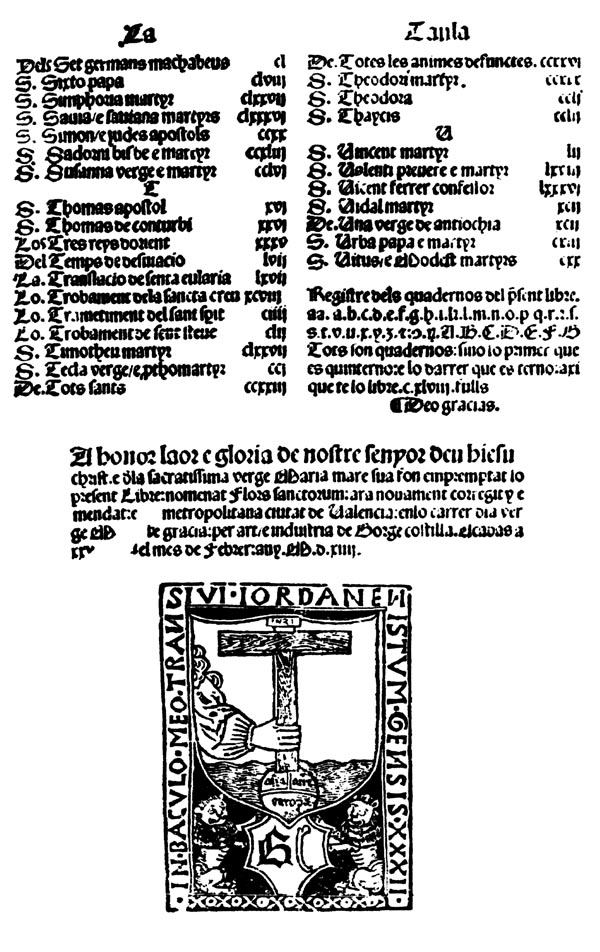 La Taula
Dels Set germans machabeus cl
S. Sixto papa clviij
S. Simphoria martyr clxxvij
S. Sauia/e sauiana martyrs clxxxvj
S. Simon/e judes apostols ccxx
S. Sadorni bisbe e martyr ccxliij
S. Susanna verge e martyr cclvj
T
S. Thomas apostol xvj
S. Thomas de conturbi xxvj
Los Tres reys dorient xxxv
Del Temps de desuiacio lvij
La. Translacio de senta eularia lxvij
Lo. Trobament dela sancta creu xcviij
Lo. Trametiment del sant spit ciiij
Lo. Trobament de sent steue clij
S. Timotheu martyr clxxvij
S. Tecla verge/e pthomartyr ccj
De. Tots sants ccxxiij
De. Totes les animes defunctes. ccxxvj
S. Theodori martyr.
S. Theodora cclj
S. Thaycis
U
S. Uincent martyr lij
S. Ualenti preuere e martyr
S. Uicent ferrer confessor lxxxvj
S. Uidal martyr xcij
De. Una verge de antiochia xcij
S. Urba papa e martyr
S. Uitus/e Modest martyrs cxx
Registre dels quadernos del psent libre.
aa. a.b.c.d.e.f.g.h.i.k.l.m.n.o.p q.r.z.s.
s.t.v.u.x.y.z. A.B.C.D.E.F.G
Tots son quadernos: sino lo primer que
es quinterno: e lo darrer que es terno: axi
que te lo libre.c.xlviij. fulls
Deo gracias.
A honor laor e gloria de nostre senyor deu hiesu
christ.e dla sacratissima verge Maria mare sua fon empremptat lo
present Libre: nomenat Flors sanctorum: ara nouament corregit y e
mendat: e metropolitana ciutat de Ualencia: enlo carrer dla ver
ge M de gracia: per art/e industria de Gorge costilla. Acabas a
xxv del mes de Febrer: any. M.d.xiiij.
IN·BACVLO·MEO·TRANSIVI·IORDANEM·ISTVM·GENSIS·XXXII
INRI
asia afri
europa
G C